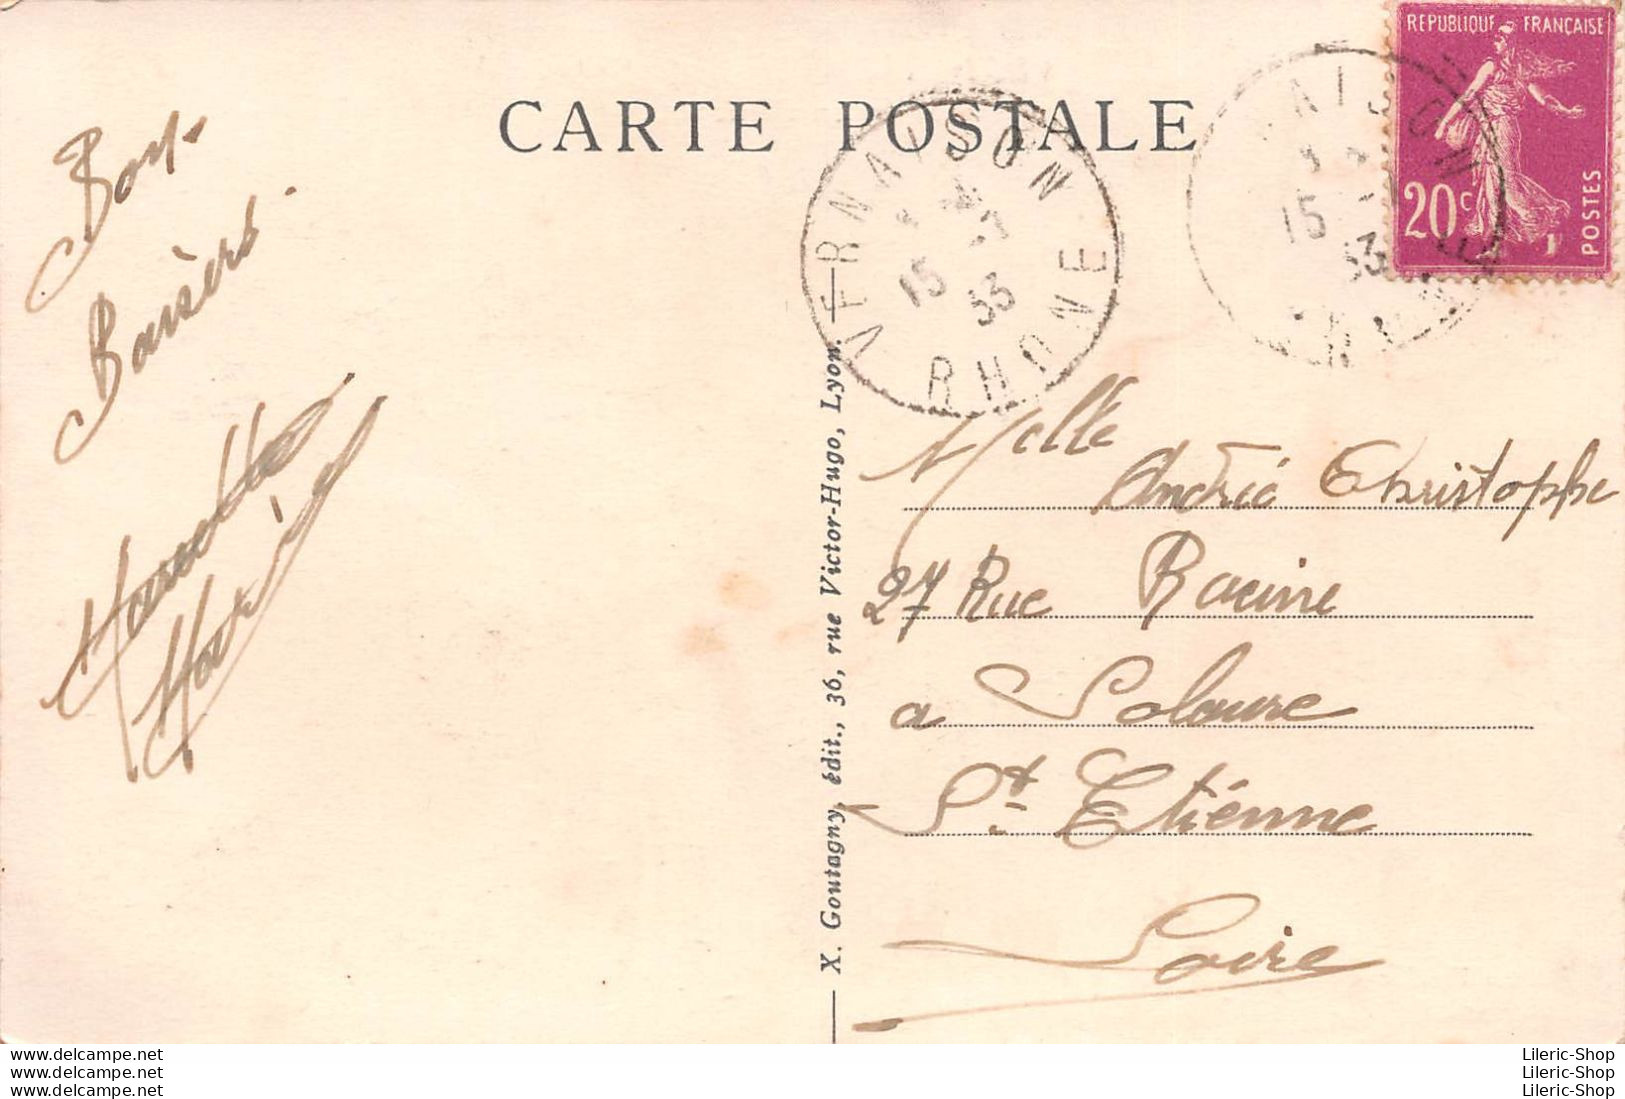 CARTE POSTALE
REPUBLIQUE FRANÇAISE
20c
POSTES
VERNAISON
15
33
RHONE
AISON
15
33
Bons
Baisers
Melle
Andrée Christophe
27 Rue Racine
a Solaure
St Etienne
Loire
X. Goutagny, édit., 36, rue Victor-Hugo, Lyon.
www.delcampe.net
www.delcampe.net
www.delcampe.net
Lileric-Shop
Lileric-Shop
Lileric-Shop